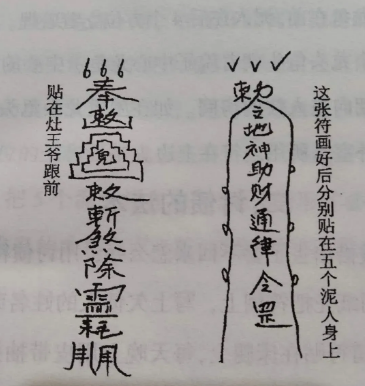 这张符画好后分别贴在五个泥人身上
敕令地神助财通律令罡
奉敕
敕斬煞除
贴在灶王爷跟前